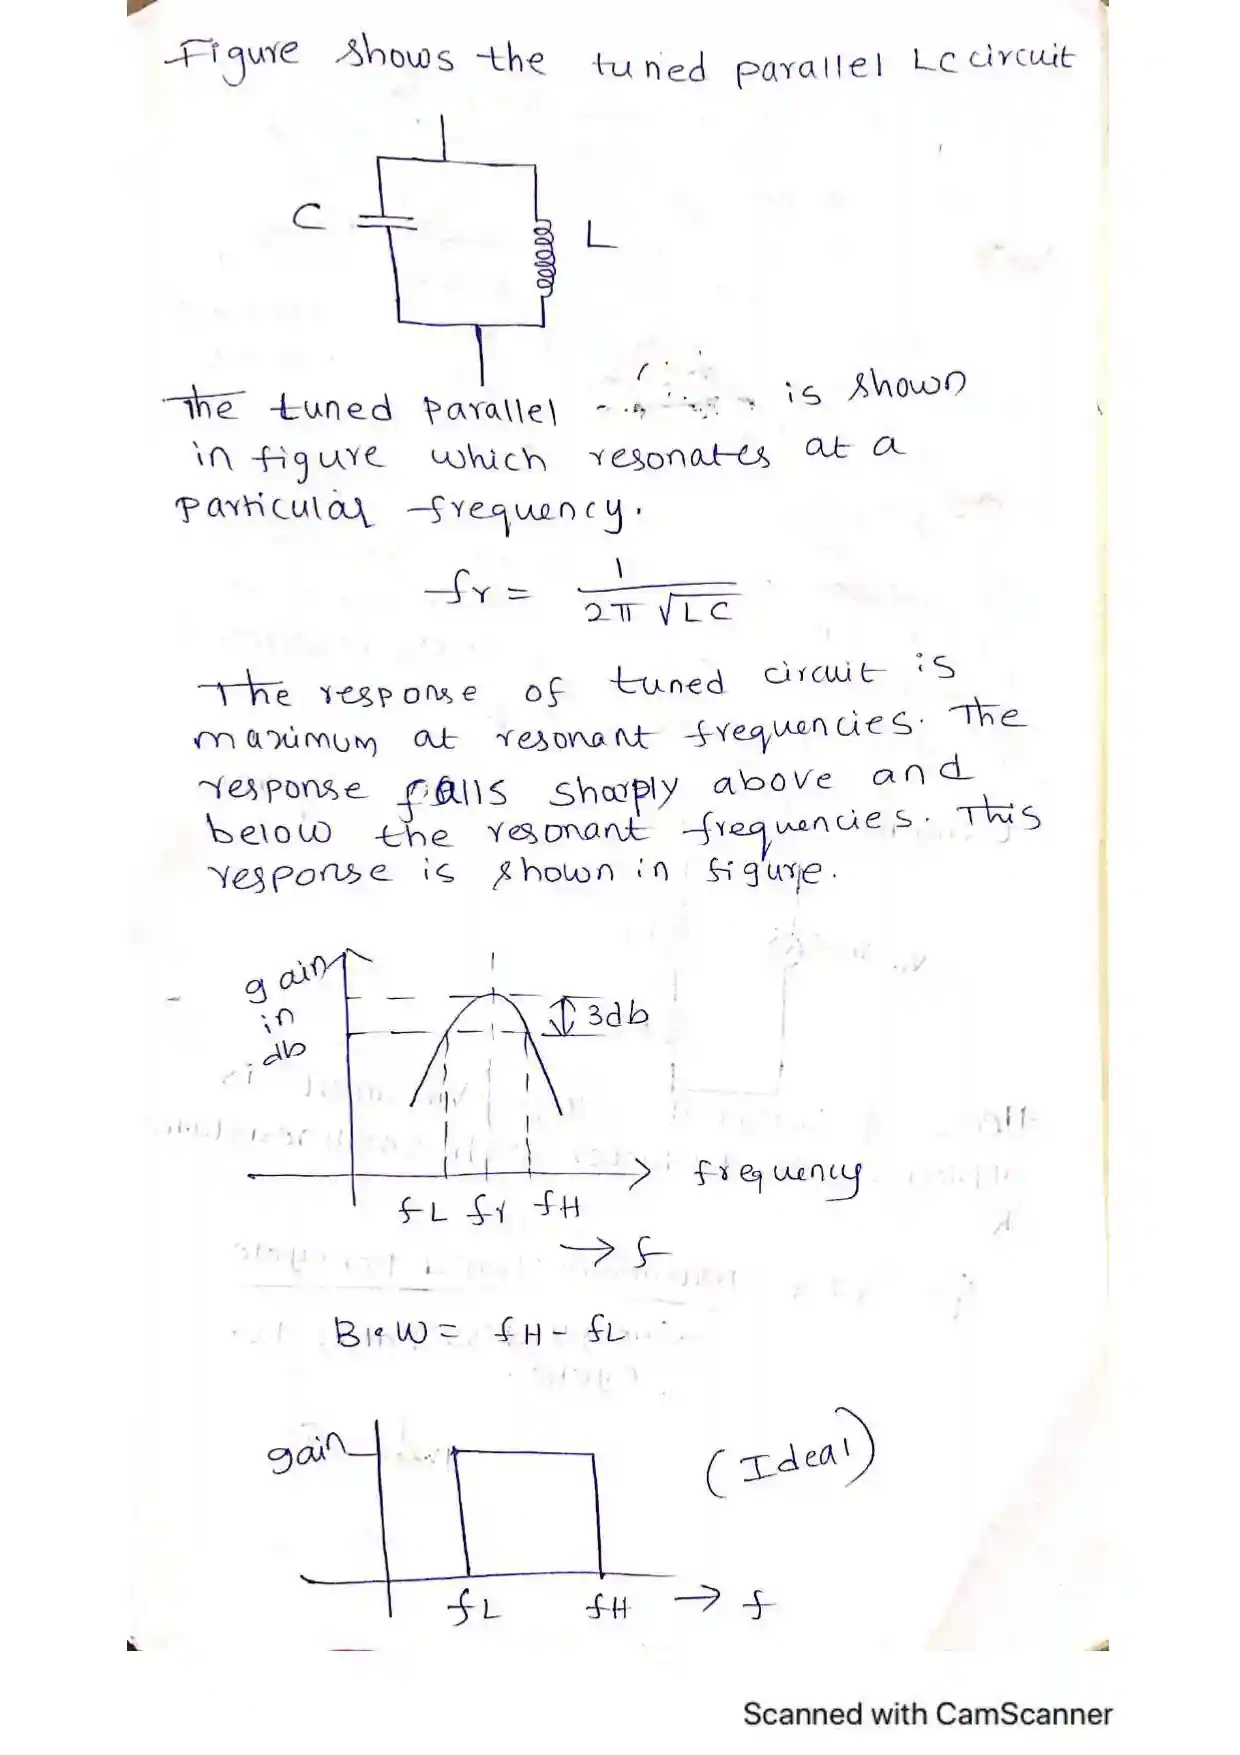 Figure shows the tuned parallel LC circuit
C
L
The tuned parallel is shown
in figure which resonates at a
particular frequency.
fr = 1 / 2π √LC
The response of tuned circuit is
maximum at resonant frequencies. The
response falls sharply above and
below the resonant frequencies. This
response is shown in figure.
gain
in
db
3db
frequency
fL fr fH
→ f
B W = fH - fL
gain
(Ideal)
fL fH → f
Scanned with CamScanner